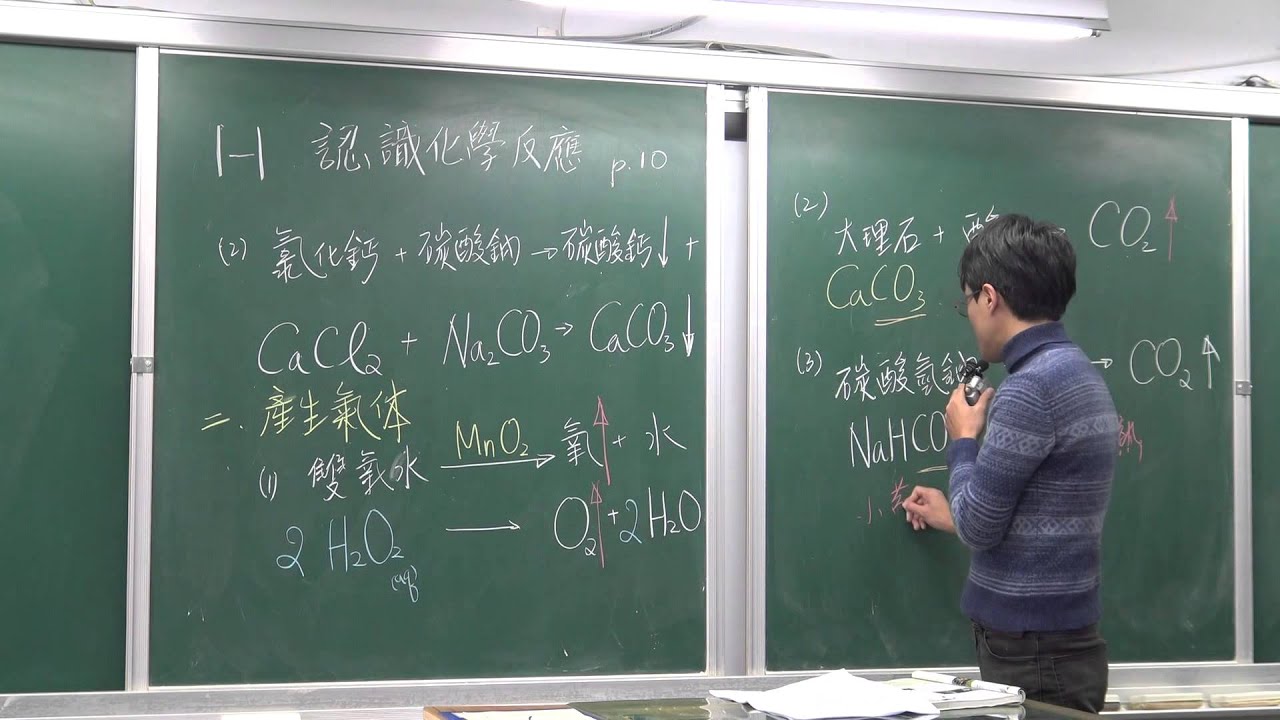 1-1 認識化學反應 p.10
(2) 氯化鈣 + 碳酸鈉 → 碳酸鈣↓ +
CaCl₂ + Na₂CO₃ → CaCO₃↓
二. 產生氣体
MnO₂
(1) 雙氧水 → 氧↑ + 水
2 H₂O₂(aq) → O₂↑ + 2H₂O
(2) 大理石 + 酸 CO₂↑
CaCO₃
(3) 碳酸氫鈉 → CO₂↑
NaHCO
小